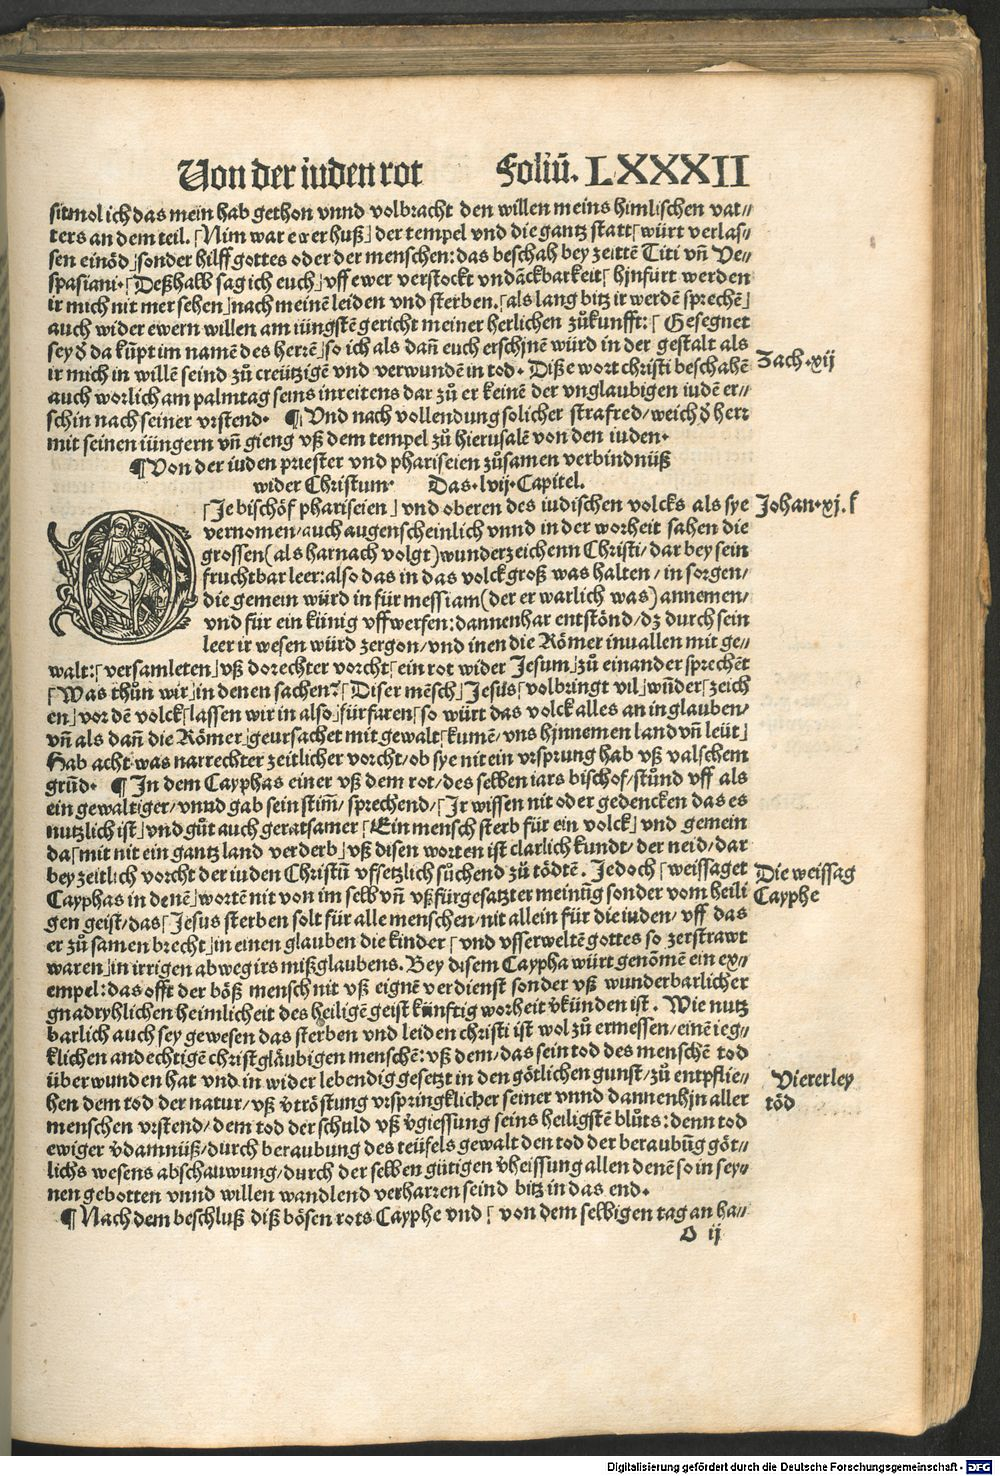 Von der iuden rot Foliū. LXXXII
sitmol ich das mein hab gethon vnnd volbracht den willen meins himlischen vat⸗
ters an dem teil. ⌈Nim war ewer huß⌋ der tempel vnd die gantz statt ⌈würt verlas⸗
sen einöd⌋ sonder hilff gottes oder der menschen: das beschah bey zeittē Titi vn̄ Ve⸗
spasiani. ⌈Deßhalb sag ich euch⌋ vff ewer verstockt vndāckbarkeit ⌈hjnfürt werden
ir mich nit mer sehen⌋ nach meinē leiden vnd sterben. ⌈als lang bitz ir werdē sprechē⌋
auch wider ewern willen am iüngstē gericht meiner herlichen zůkunfft: ⌈Gesegnet
sey d̕ da kūpt im namē des herrē⌋ so ich als dan̄ euch erschjnē würd in der gestalt als
ir mich in willē seind zů creützigē vnd verwundē in tod. Diße wort christi beschahē
Zach. xij
auch worlich am palmtag seins inreitens dar zů er keinē der vnglaubigen iudē er⸗
schin nach seiner vrstend. ¶ Vnd nach vollendung solicher strafred/ weich d̕ herr
mit seinen iüngern vn̄ gieng vß dem tempel zů hierusalē von den iuden.
¶ Von der iuden priester vnd phariseien zůsamen verbindnüß
wider Christum. Das. lvij. Capitel.
D⌈Je bischöf phariseien⌋ vnd oberen des iudischen volcks als sye
Johan. xj. f
vernomen/ auch augenscheinlich vnnd in der worheit sahen die
grossen (als harnach volgt) wunderzeichenn Christi/ dar bey sein
fruchtbar leer: also das in das volck groß was halten/ in sorgen/
die gemein würd in für messiam (der er warlich was) annemen/
vnd für ein künig vffwerfen: dannenhar entstönd/ dz durch sein
leer ir wesen würd zergon/ vnd inen die Römer inuallen mit ge⸗
walt: ⌈versamleten⌋ vß dorechter vorcht ⌈ein rot wider Jesum⌋ zů einander sprechēt
⌈Was thůn wir⌋ in denen sachen? ⌈Diser mēsch⌋ Jesus ⌈volbringt vil⌋ wūder ⌈zeich
en⌋ vor dē volck ⌈lassen wir in also⌋ fürfaren ⌈so würt das volck alles an in glauben/
vn̄ als dan̄ die Römer⌋ geursachet mit gewalt ⌈kumē/ vns hjnnemen land vn̄ leüt⌋
Hab acht was narrechter zeitlicher vorcht/ ob sye nit ein vrsprung hab vß valschem
grūd. ¶ ⌈In dem Cayphas einer vß dem rot/ des selben iars bischof/ stůnd vff als
ein gewaltiger/ vnnd gab sein stim̄/ sprechend/ ⌈Ir wissen nit oder gedencken das es
nutzlich ist⌋ vnd gůt auch geratsamer ⌈Ein mensch sterb für ein volck⌋ vnd gemein
da⌈mit nit ein gantz land verderb⌋ vß disen worten ist clarlich kundt/ der neid/ dar
bey zeitlich vorcht der iuden Christū vfsetzlich sůchend zů tödtē. Jedoch ⌈weissaget
Die weissag
Cayphas in denē⌋ wortē nit von im selb vn̄ vßfürgesatzter meinūg sonder vom heili
Cayphe
gen geist/ das ⌈Jesus sterben solt für alle menschen/ nit allein für die iuden/ vff das
er zů samen brecht⌋ in einen glauben die kinder ⌈vnd vsserweltē gottes so zerstrawt
waren⌋ in irrigen abweg irs mißglaubens. Bey disem Caypha würt genōmē ein ex⸗
empel: das offt der böß mensch nit vß eignē verdienst sonder vß wunderbarlicher
gnadryhlichen heimlicheit des heiligē geist künftig worheit v̕künden ist. Wie nutz
barlich auch sey gewesen das sterben vnd leiden christi ist wol zů ermessen/ einē ieg⸗
klichen andechtigē christgläubigen menschē: vß dem/ das sein tod des menschē tod
überwunden hat vnd in wider lebendig gesetzt in den götlichen gunst/ zů entpflie⸗
Viererley
hen dem tod der natur/ vß v̕tröstung vrspringklicher seiner vnnd dannenhjn aller
töd
menschen vrstend/ dem tod der schuld vß v̕giessung seins heiligstē blůts: denn tod
ewiger v̕damnüß/ durch beraubung des teüfels gewalt den tod der beraubūg göt⸗
lichs wesens abschauwung/ durch der selben gütigen v̕heissung allen denē so in sey⸗
nen gebotten vnnd willen wandlend verharren seind bitz in das end.
¶ Nach dem beschluß diß bösen rots Cayphe vnd ⌈von dem selbigen tag an ha⸗
O ij
Digitalisierung gefördert durch die Deutsche Forschungsgemeinschaft - DFG